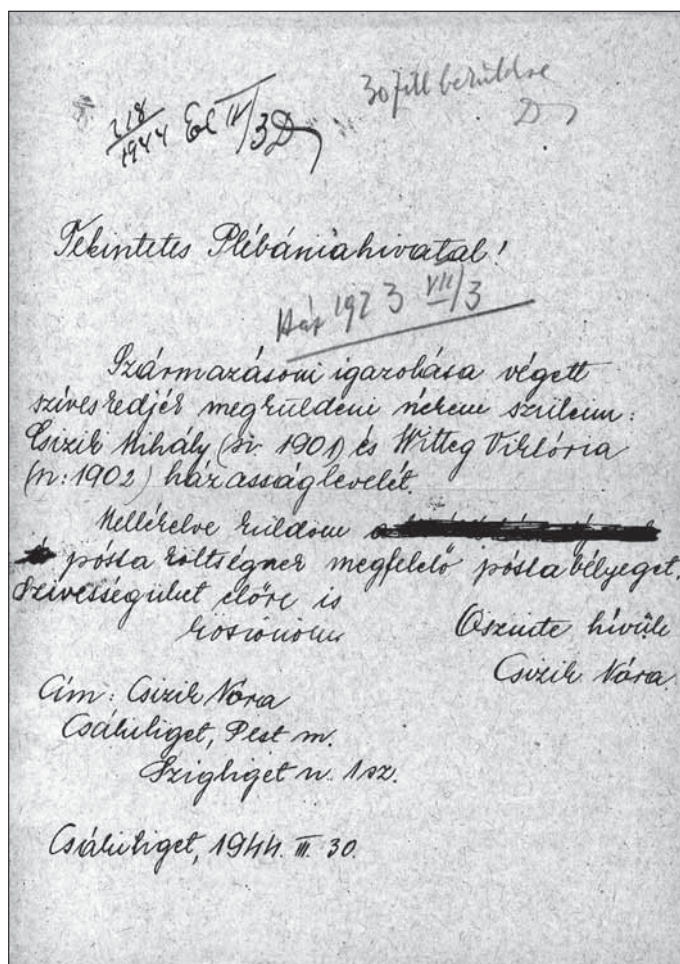 218/1944 El IV/3 D
30 fill beküldve
D
Tekintetes Plébániahivatal!
Ház 1923 VII/3
Származásom igazolása végett
sziveskedjék megküldeni nékem szüleim:
Csizik Mihály (sz. 1901) és Witteg Viktória
(sz: 1902) házasságlevelét.
Mellékelve küldöm
posta költségnek megfelelő posta bélyeget.
Szivességüket előre is
köszönöm
Őszinte hívük
Csizik Nóra.
Cím: Csizik Nóra
Csákiliget, Pest m.
Szigliget u. 1 sz.
Csákiliget, 1944. III. 30.